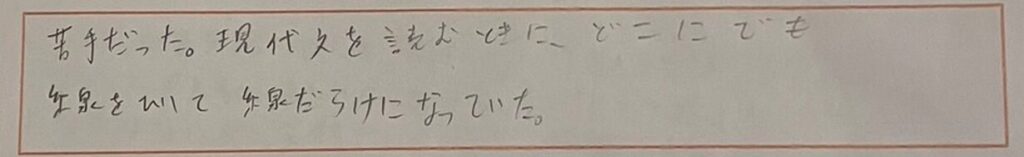 苦手だった。現代文を読むときに、どこにでも
線をひいて線だらけになっていた。